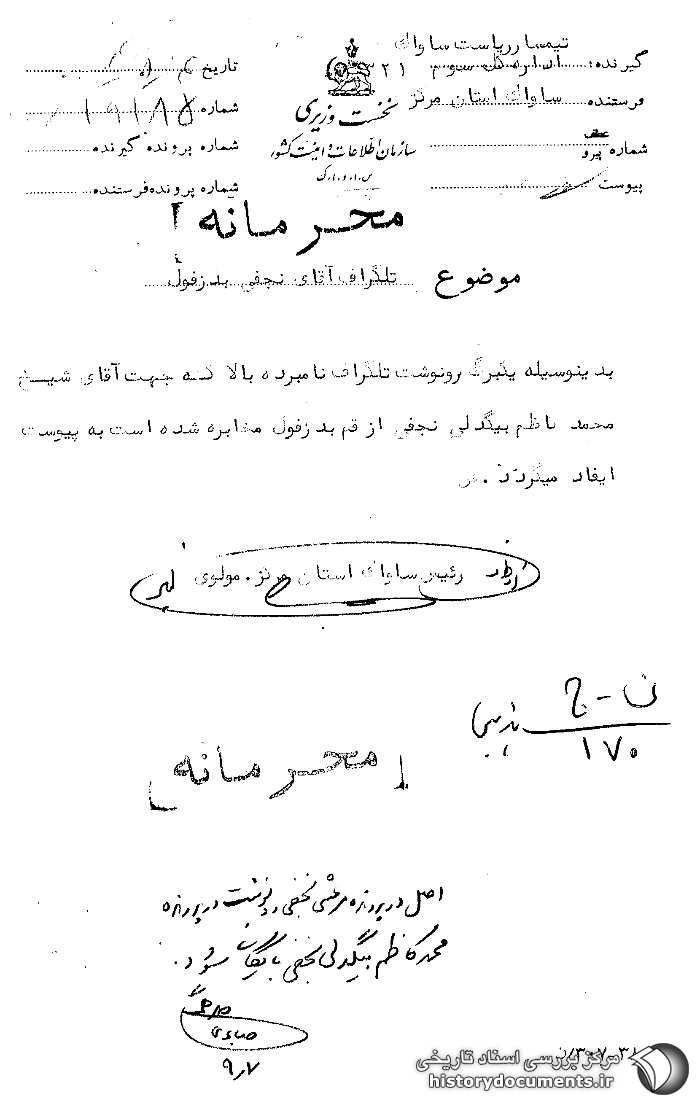 تیمسار ریاست ساواک
گیرنده: اداره کل سوم ۳۲۱
فرستنده ساواک استان مرکز
شماره پیرو
پیوست
نخست وزیری
سازمان اطلاعات و امنیت کشور
س.ا.و.ا.ک
تاریخ
شماره
شماره پرونده گیرنده
شماره پرونده فرستنده
محرمانه
موضوع تلگراف آقای نجفی بدزفول
بدینوسیله یکبرگ رونوشت تلگراف نامبرده بالا که جهت آقای شیخ
محمد کاظم بیگدلی نجفی از قم بدزفول مخابره شده است به پیوست
ایفاد میگردد.
رئیس ساواک استان مرکز. مولوی
ن - ج
۱۷۰
محرمانه
اصل در پرونده مرعشی نجفی رونوشت در پرونده
محمد کاظم بیگدلی نجفی بایگانی شود.
۹٫۷
مرکز بررسی اسناد تاریخی
historydocuments.ir